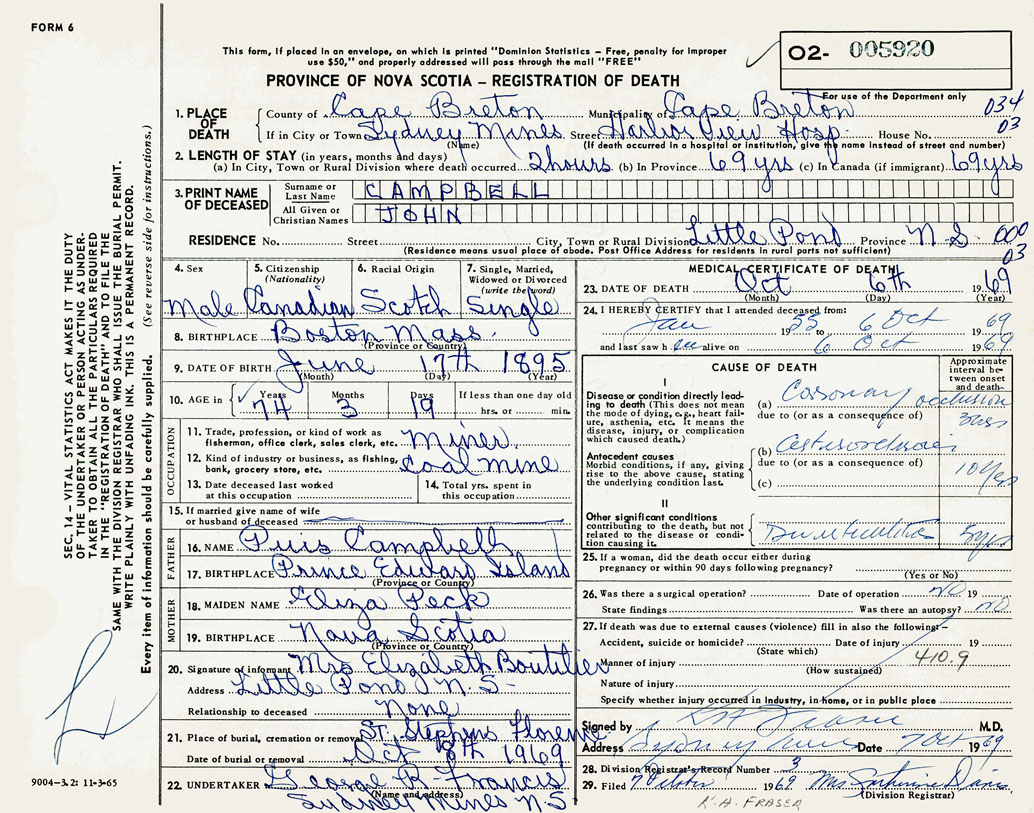 FORM 6
This form, if placed in an envelope, on which is printed "Dominion Statistics – Free, penalty for improper
use $50," and properly addressed will pass through the mail "FREE"
O2- 005920
For use of the Department only
PROVINCE OF NOVA SCOTIA – REGISTRATION OF DEATH
034
03
1. PLACE OF DEATH
County of Cape Breton Municipality of Cape Breton
If in City or Town Sydney Mines Street Harbor View Hosp. House No.
(Name) (If death occurred in a hospital or institution, give the name instead of street and number)
2. LENGTH OF STAY (in years, months and days)
(a) In City, Town or Rural Division where death occurred 2 hours (b) In Province 69 yrs (c) In Canada (if immigrant) 69 yrs
3. PRINT NAME OF DECEASED
Surname or Last Name CAMPBELL
All Given or Christian Names JOHN
RESIDENCE No. Street City, Town or Rural Division Little Pond Province N S 000
03
(Residence means usual place of abode. Post Office Address for residents in rural parts not sufficient)
4. Sex
Male
5. Citizenship
(Nationality)
Canadian
6. Racial Origin
Scotch
7. Single, Married,
Widowed or Divorced
(write the word)
Single
8. BIRTHPLACE Boston Mass.
(Province or Country)
9. DATE OF BIRTH June 17th 1895
(Month) (Day) (Year)
10. AGE in
Years Months Days If less than one day old
74 3 19 hrs. or min.
OCCUPATION
11. Trade, profession, or kind of work as
fisherman, office clerk, sales clerk, etc. Miner
12. Kind of industry or business, as fishing,
bank, grocery store, etc. Coal mine
13. Date deceased last worked
at this occupation
14. Total yrs. spent in
this occupation
15. If married give name of wife
or husband of deceased
FATHER
16. NAME Puis Campbell
17. BIRTHPLACE Prince Edward Island
(Province or Country)
MOTHER
18. MAIDEN NAME Eliza Peck
19. BIRTHPLACE Nova Scotia
(Province or Country)
20. Signature of informant Mrs Elizabeth Boutilier
Address Little Pond N.S-
Relationship to deceased None
21. Place of burial, cremation or removal St. Stephens Florence
Date of burial or removal Oct 8th 1969
22. UNDERTAKER George R Francis
(Name and address)
Sydney Mines N.S.
MEDICAL CERTIFICATE OF DEATH
23. DATE OF DEATH Oct 6th 1969
(Month) (Day) (Year)
24. I HEREBY CERTIFY that I attended deceased from:
Jan 1955 to 6 Oct 1969
and last saw h im alive on 6 Oct 1969
CAUSE OF DEATH
Approximate
interval be-
tween onset
and death
I
Disease or condition directly lead-
ing to death (This does not mean
the mode of dying, e.g., heart fail-
ure, asthenia, etc. It means the
disease, injury, or complication
which caused death.)
(a) Coronary occlusion
due to (or as a consequence of)
Antecedent causes
Morbid conditions, if any, giving
rise to the above cause, stating
the underlying condition last.
(b)
due to (or as a consequence of)
10 yrs
(c)
II
Other significant conditions
contributing to the death, but not
related to the disease or condi-
tion causing it.
5 yrs
25. If a woman, did the death occur either during
pregnancy or within 90 days following pregnancy?
(Yes or No)
26. Was there a surgical operation? Date of operation NO 19
State findings Was there an autopsy? NO
27. If death was due to external causes (violence) fill in also the following:–
Accident, suicide or homicide? Date of injury 19
(State which)
410.9
Manner of injury
(How sustained)
Nature of injury
Specify whether injury occurred in industry, in home, or in public place
Signed by K A Fraser M.D.
Address Sydney Mines Date 7 Oct 1969
28. Division Registrar's Record Number 3
29. Filed 7 October 1969 Mrs Davis
(Division Registrar)
K. A. FRASER
SEC. 14 – VITAL STATISTICS ACT MAKES IT THE DUTY
OF THE UNDERTAKER OR PERSON ACTING AS UNDER-
TAKER TO OBTAIN ALL THE PARTICULARS REQUIRED
IN THE "REGISTRATION OF DEATH" AND TO FILE THE
SAME WITH THE DIVISION REGISTRAR WHO SHALL ISSUE THE BURIAL PERMIT.
WRITE PLAINLY WITH UNFADING INK. THIS IS A PERMANENT RECORD.
Every item of information should be carefully supplied. (See reverse side for instructions.)
9004-3.2: 11-3-65